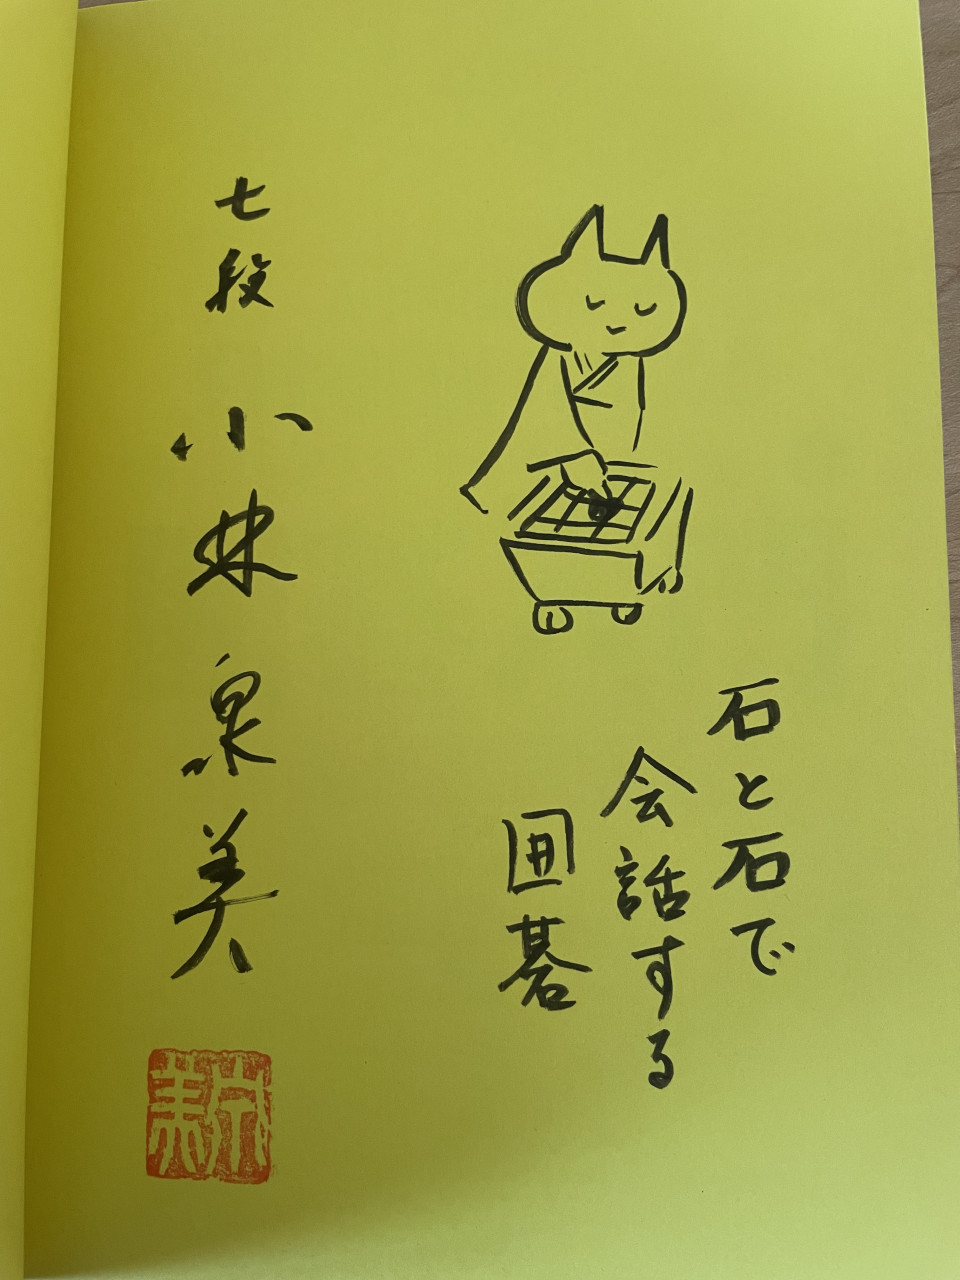 石と石で
会話する
囲碁
七段 小林泉美
泉美